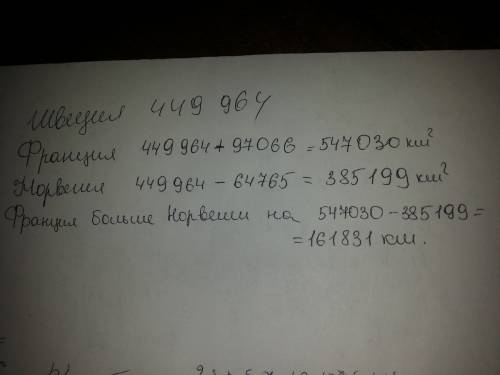 Швеция 449 964
Франция 449 964 + 97066 = 547030 км²
Норвегия 449 964 – 64765 = 385199 км²
Франция больше Норвегии на 547030 – 385199 =
= 161831 км.